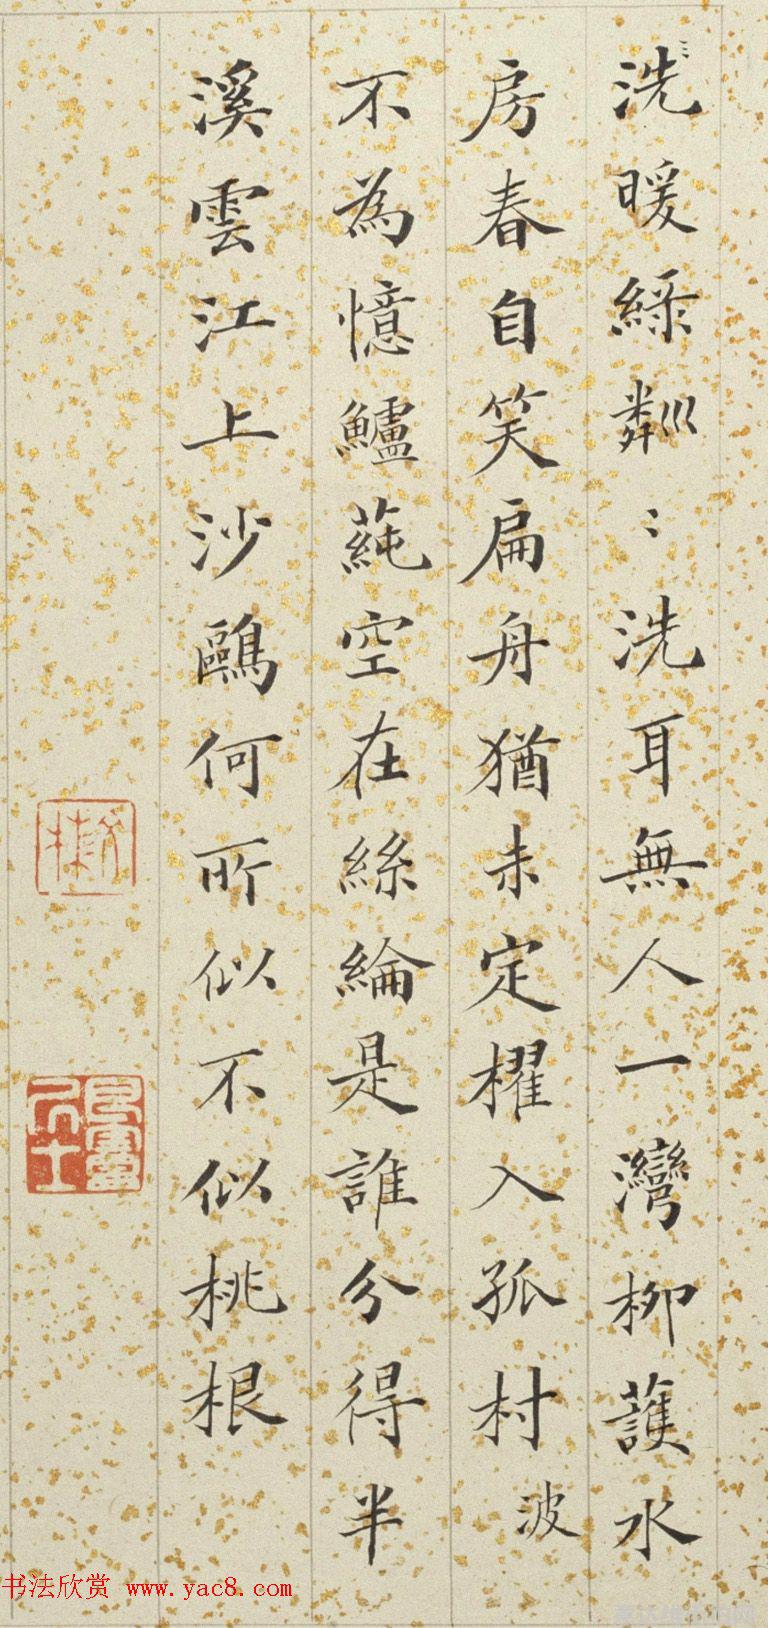 洗暖綵粼〻洗耳無人一灣柳護水
房春自笑扁舟猶未定櫂入孤村波
不為憶鱸蒓空在絲綸是誰分得半
溪雲江上沙鷗何所似不似桃根
书法欣赏 www.yac8.com